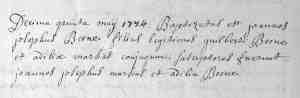 Decima quinta maÿ 1774. Baptizatus est joannes
josephus Berne filius legitimus guilberti Berne
et adiliæ marbat conjugum susceptores fuerunt
joannes josephus marbat et adilia Berne